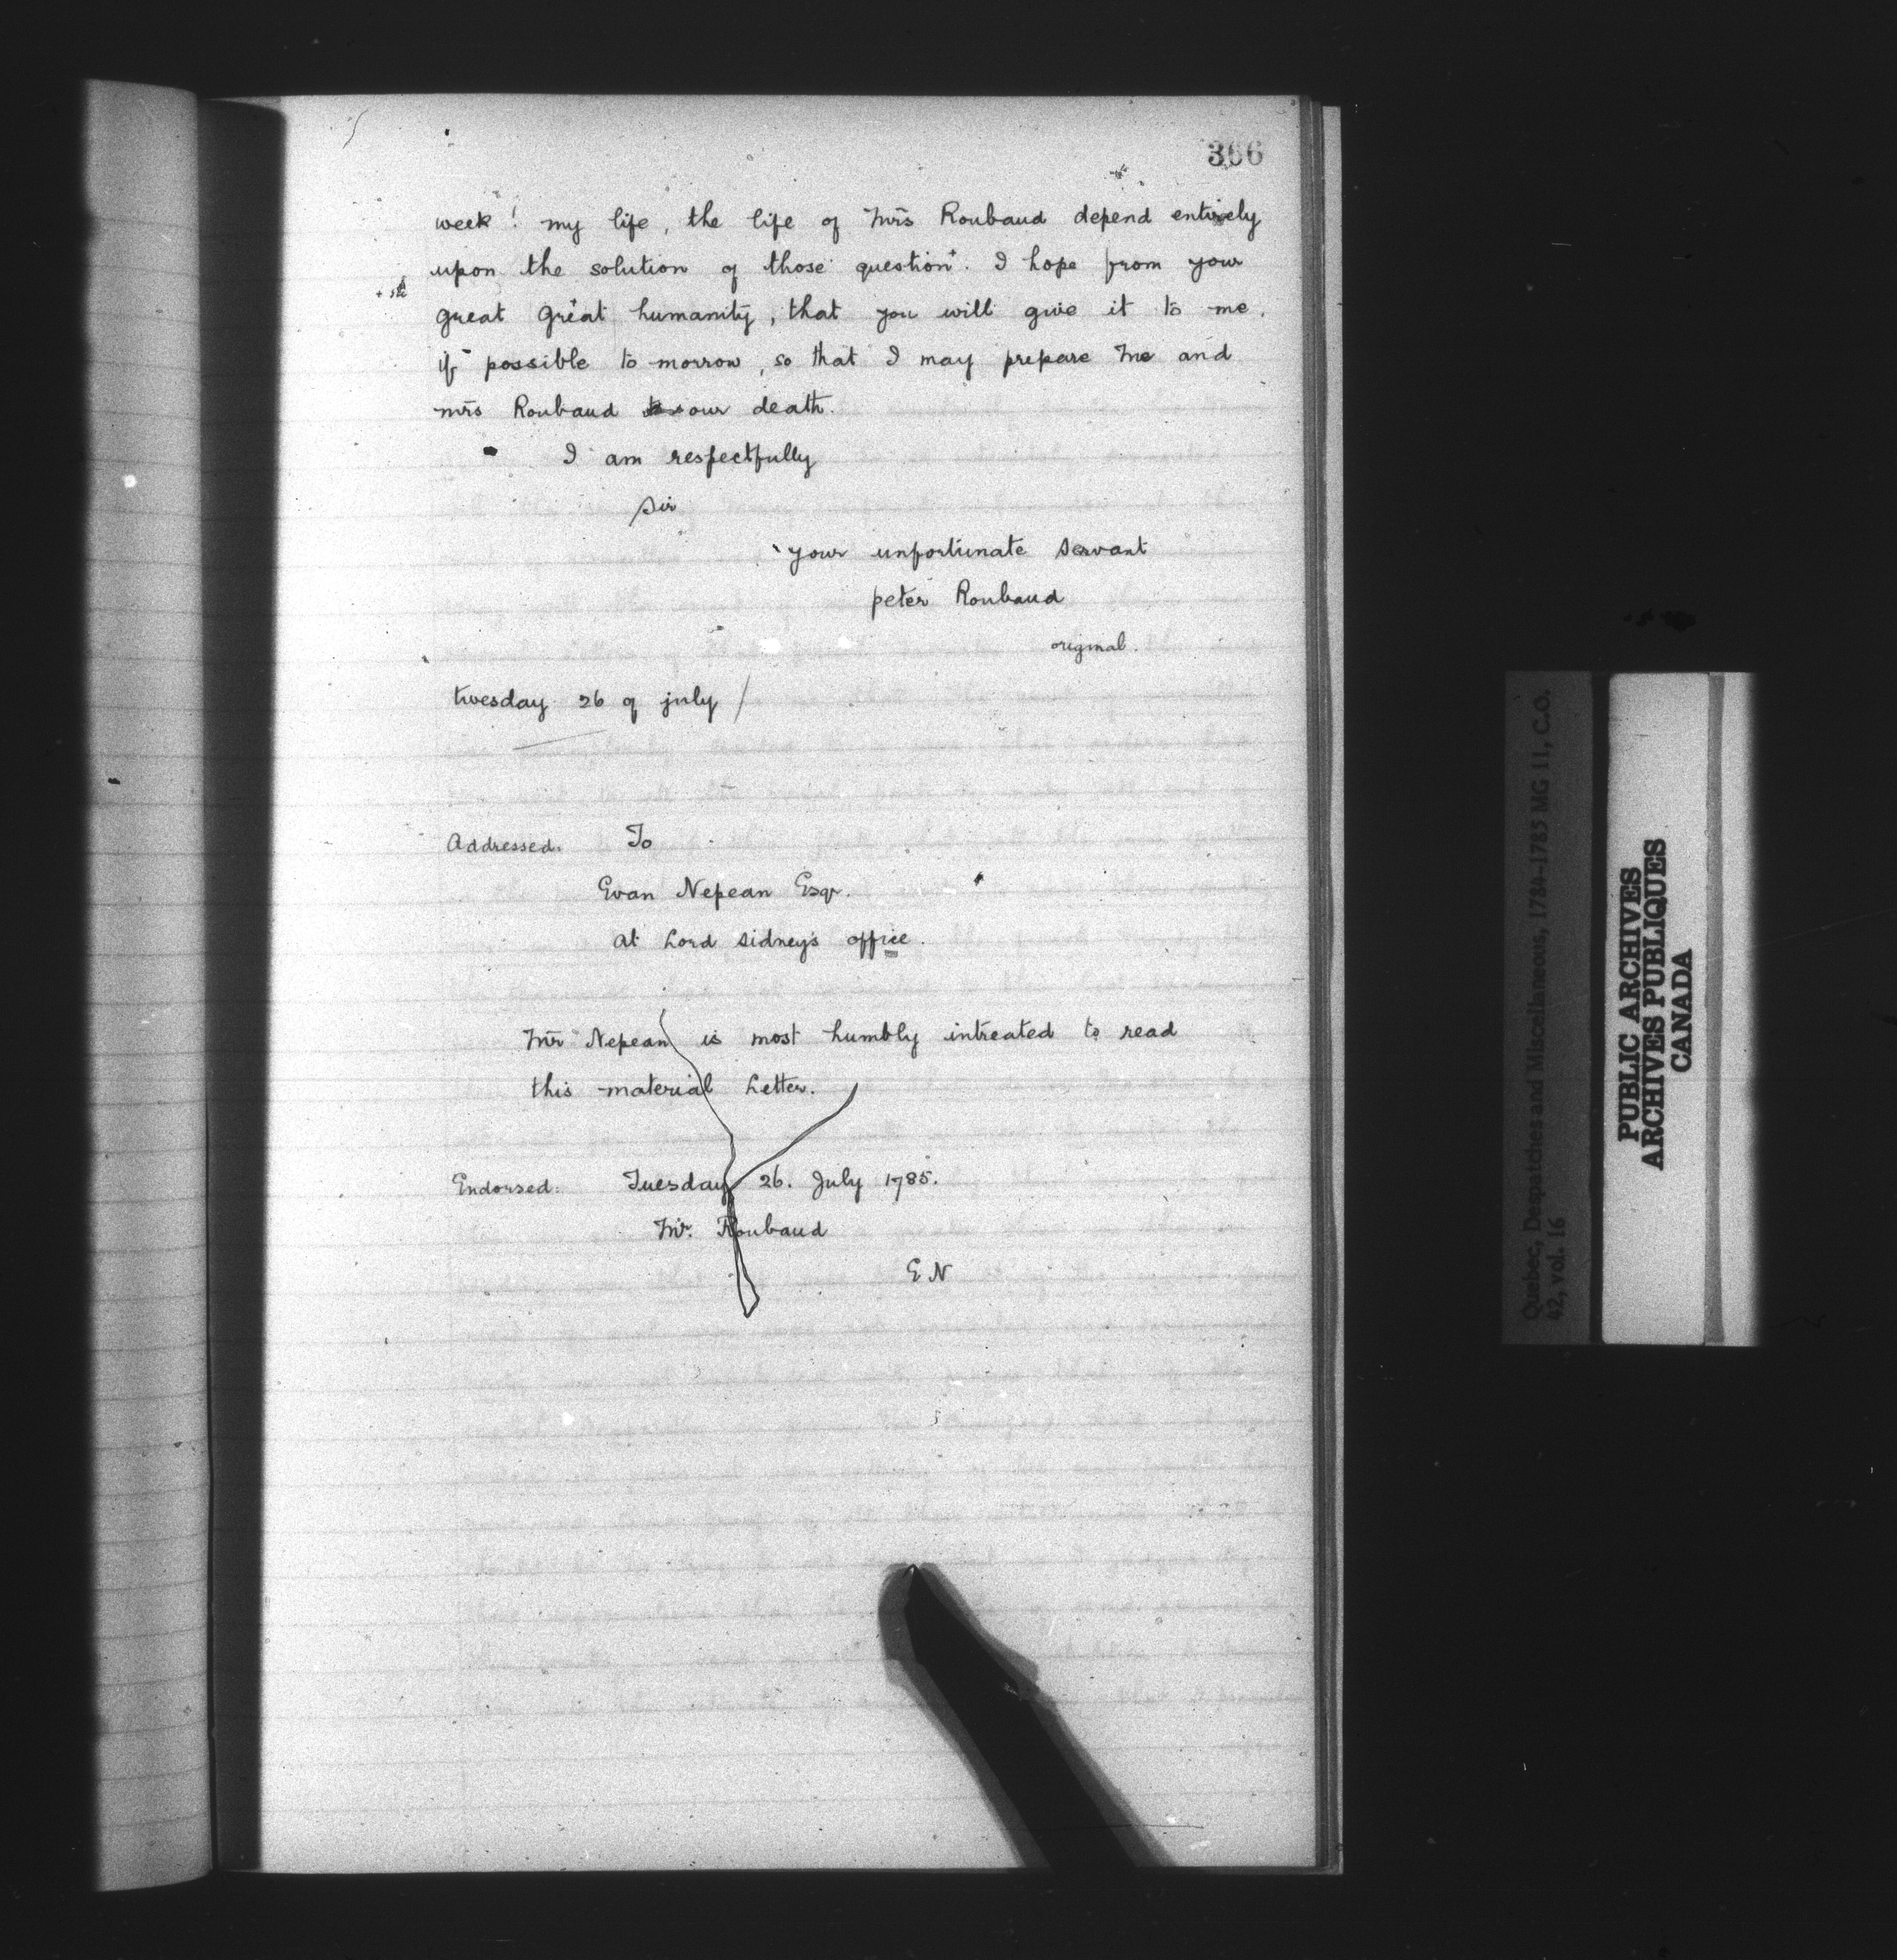 366
week! my life, the life of Mrs Roubaud depend entirely
upon the solution of those question+. I hope from your
+ sic
great great humanity, that you will give it to me,
if possible to morrow, so that I may prepare me and
mrs Roubaud our death.
I am respectfully
Sir
your unfortunate servant
peter Roubaud
original.
tuesday 26 of july /
Addressed. To
Evan Nepean Esqr.
at Lord Sidney's office.
Mr Nepean is most humbly intreated to read
this material Letter.
Endorsed: Tuesday 26. July 1785.
Mr. Roubaud
E N
Quebec, Despatches and Miscellaneous, 1784-1785 MG 11, C.O.
42, vol. 16
PUBLIC ARCHIVES
ARCHIVES PUBLIQUES
CANADA